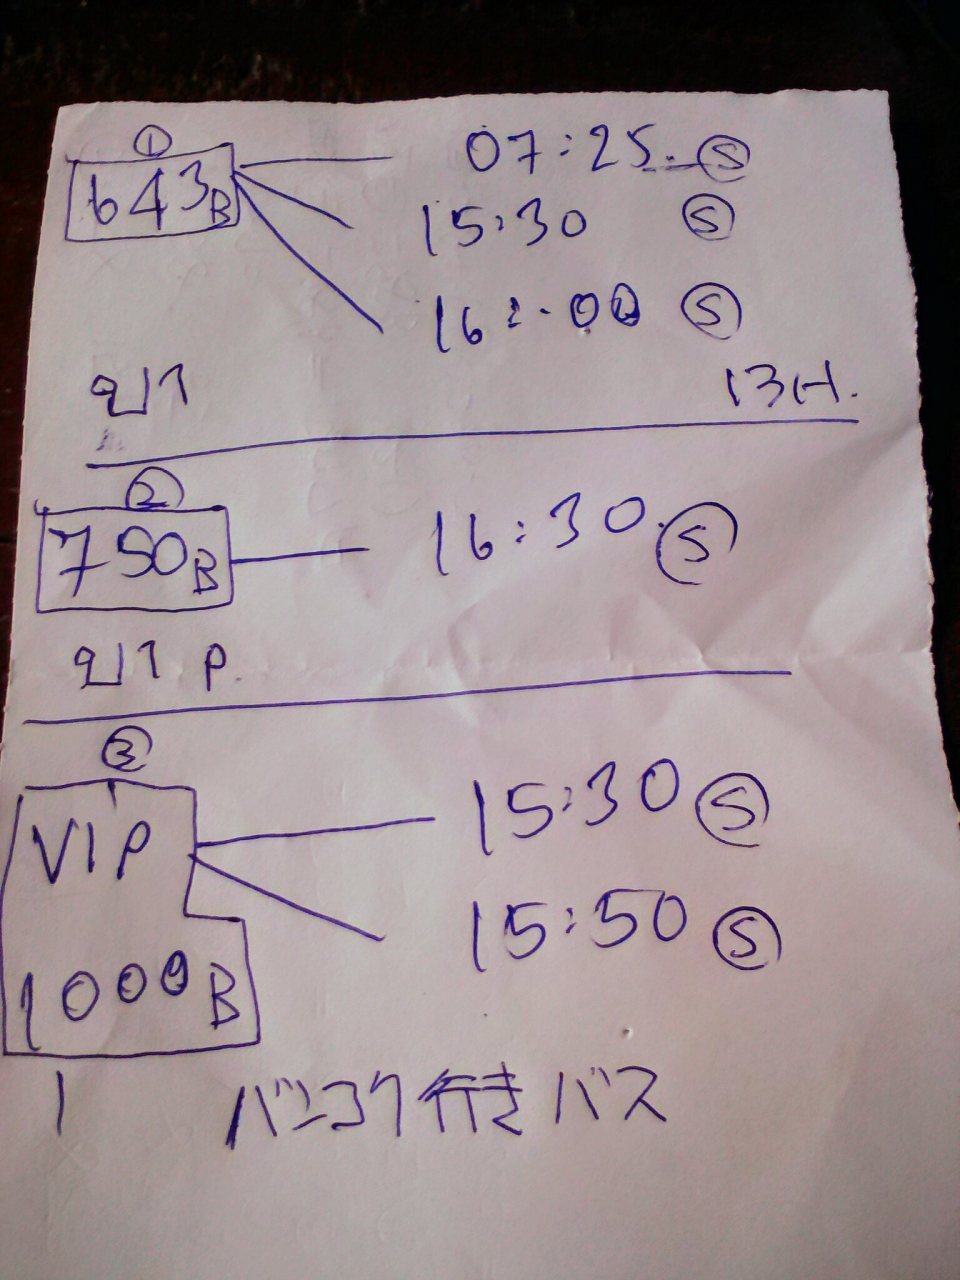 ①
643B 07:25. Ⓢ
15:30 Ⓢ
16:00 Ⓢ
ป1 13H.
②
750B 16:30. Ⓢ
ป1 P.
③
VIP 15:30 Ⓢ
15:50 Ⓢ
1000B
バンコク行きバス